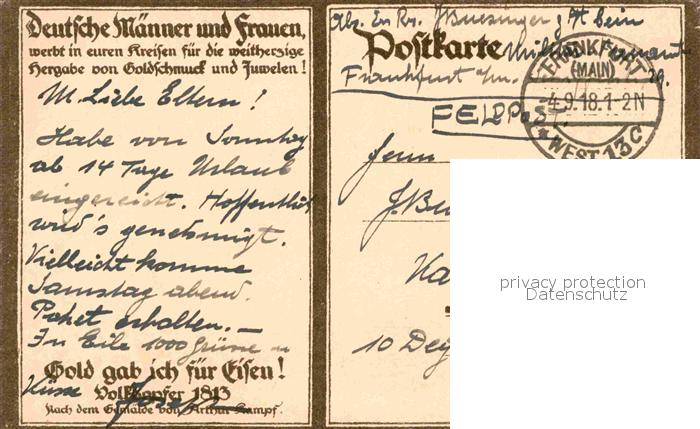 Deutsche Männer und Frauen,
werbt in euren Kreisen für die weitherzige
Hergabe von Goldschmuck und Juwelen!
M. Liebe Eltern!
Habe von Sonntag
ab 14 Tage Urlaub
eingereicht. Hoffentlich
wird's genehmigt.
Vielleicht komme
Samstag abend.
Paket erhalten. —
In Eile 1000 Grüsse u
Küsse Joseph
Gold gab ich für Eisen!
Volksopfer 1813
Nach dem Gemälde von Arthur Kampf.
Abs. Ers. Rs. J. Buesinger z. Zt. beim
Postkarte
Frankfurt a/m.
FELDPOST
FRANKFURT
(MAIN)
4.9.18.1-2N
WEST 13
Herrn
J. Bu
Ha
10 Deg
privacy protection
Datenschutz